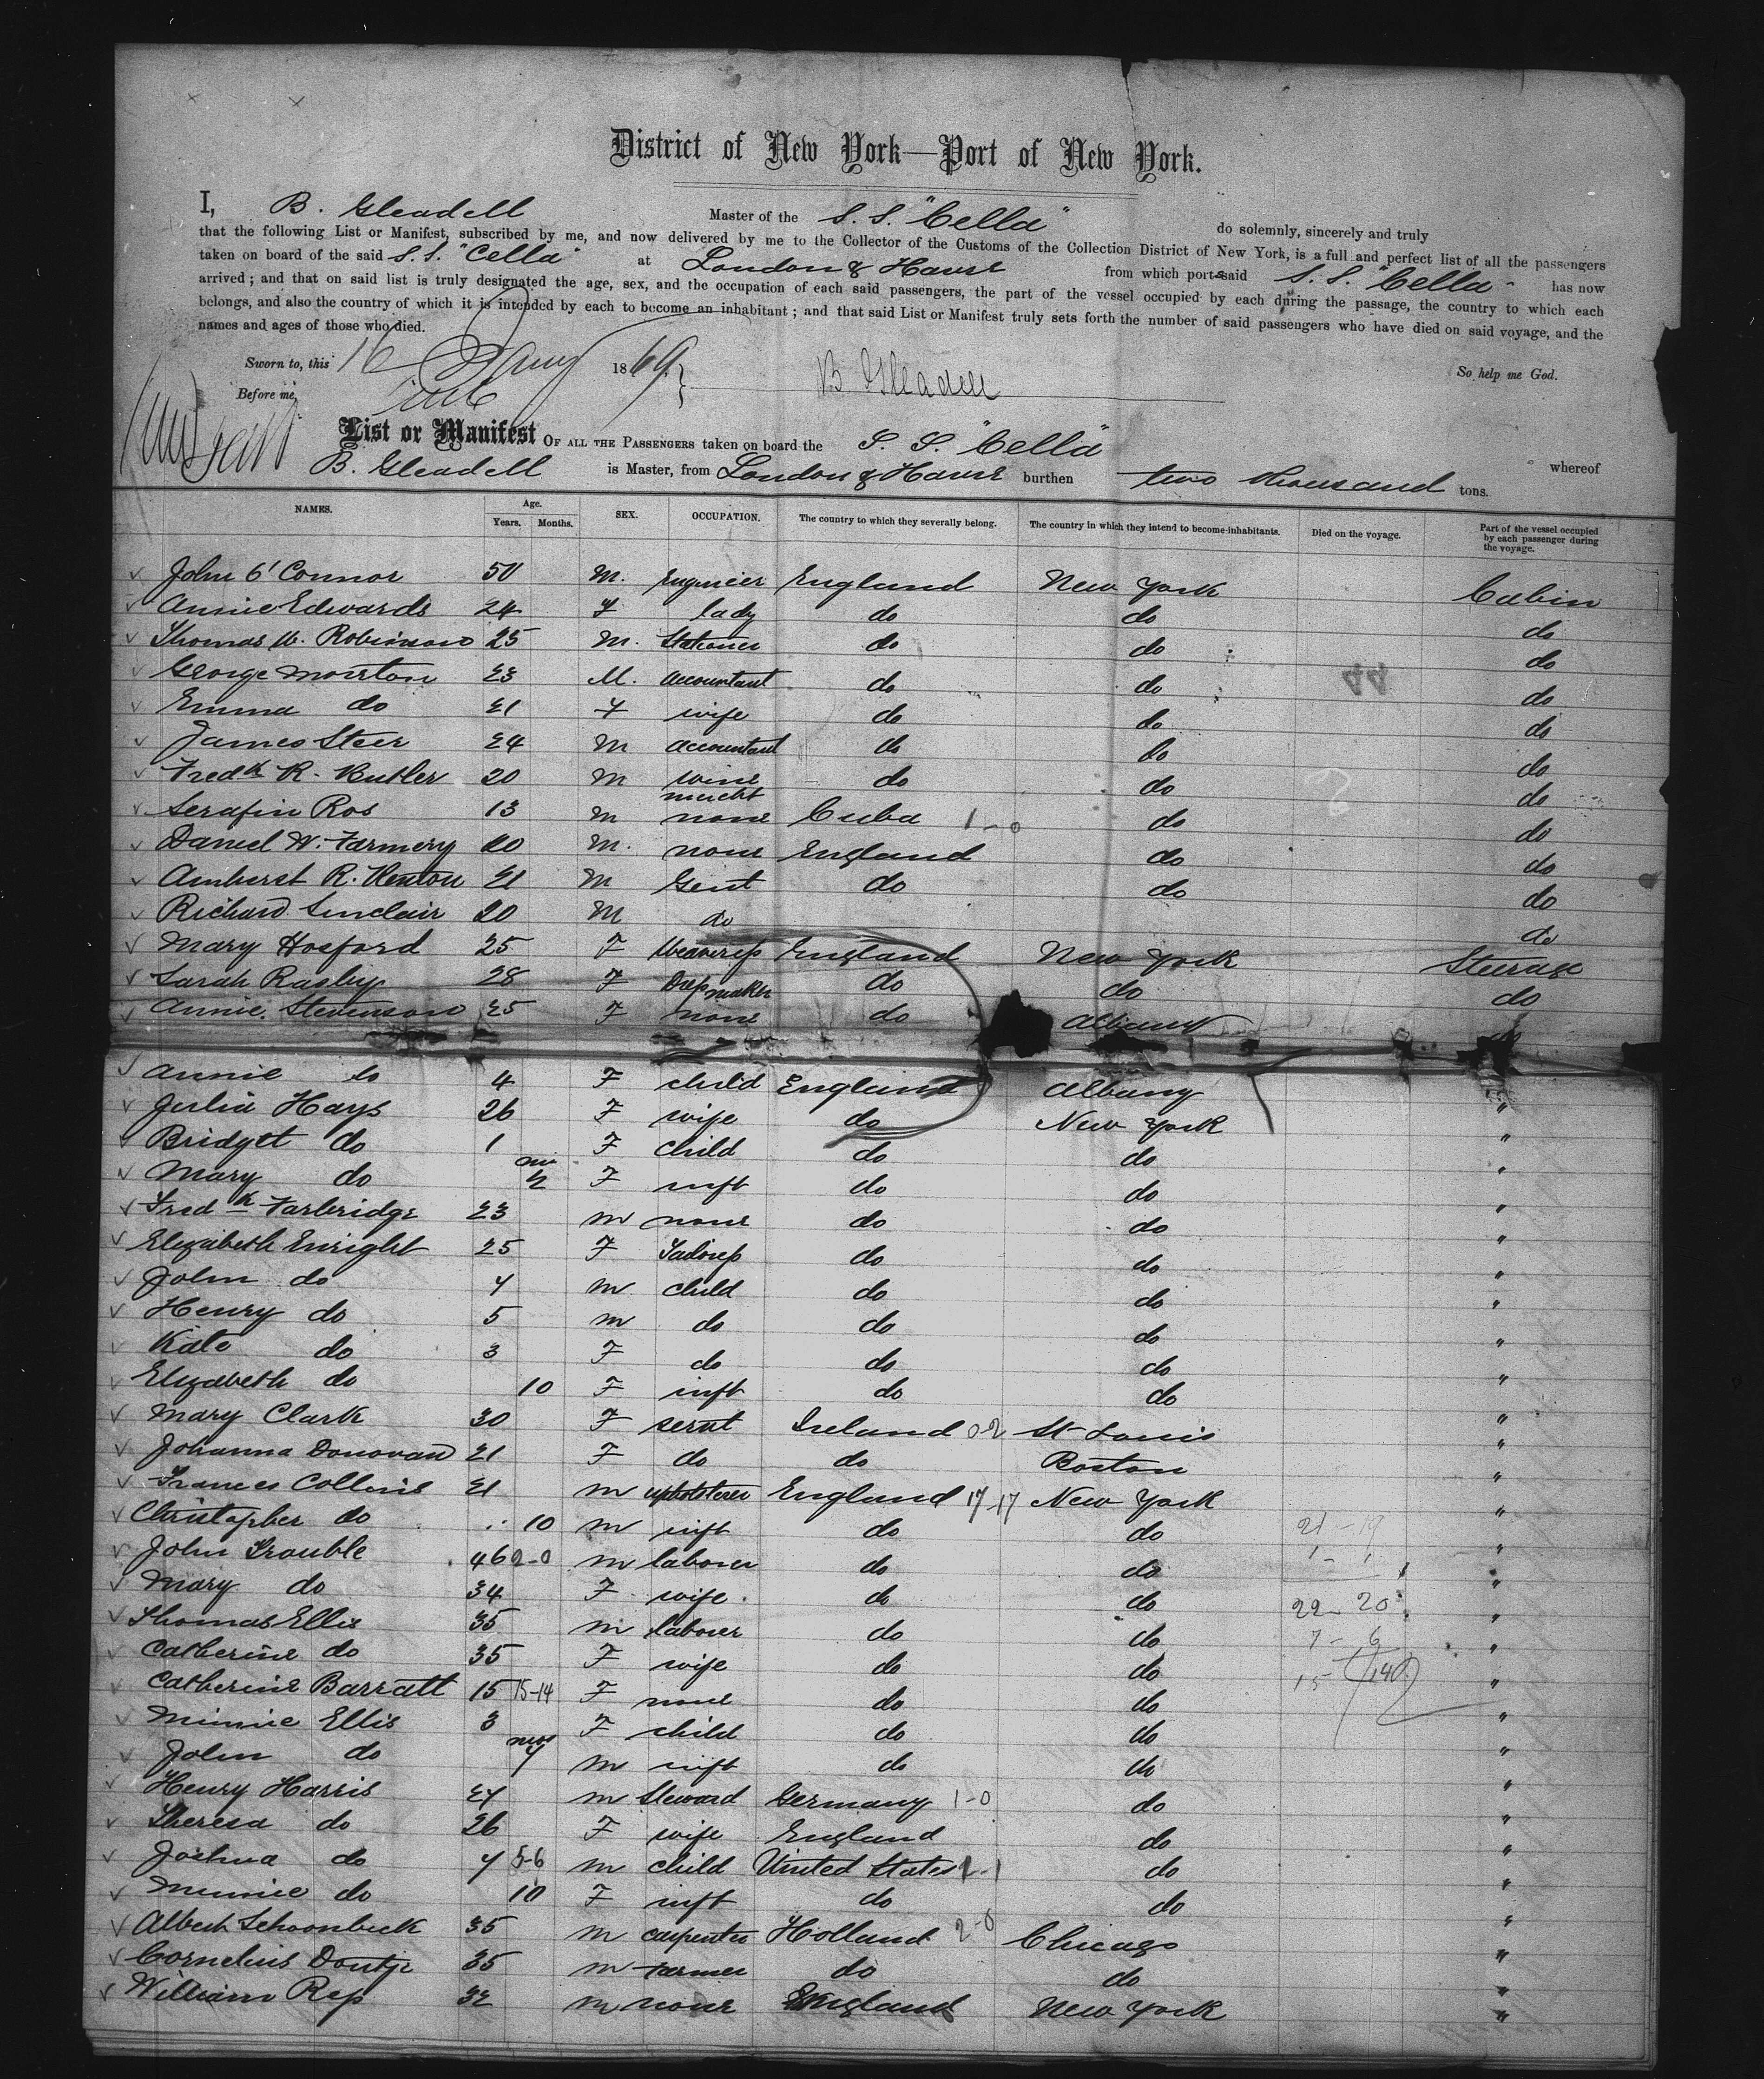 District of New York—Port of New York.
I, B. Gleadell Master of the S. S. "Cella" do solemnly, sincerely and truly
that the following List or Manifest, subscribed by me, and now delivered by me to the Collector of the Customs of the Collection District of New York, is a full and perfect list of all the passengers
taken on board of the said S. S. "Cella" at London & Havre from which port said S. S. "Cella" has now
arrived; and that on said list is truly designated the age, sex, and the occupation of each said passengers, the part of the vessel occupied by each during the passage, the country to which each
belongs, and also the country of which it is intended by each to become an inhabitant; and that said List or Manifest truly sets forth the number of said passengers who have died on said voyage, and the
names and ages of those who died.
Sworn to, this 16 1869 B Gleadell So help me God.
Before me,
List or Manifest OF ALL THE PASSENGERS taken on board the S. S. "Cella" whereof
B. Gleadell is Master, from London & Havre burthen two thousand tons.
NAMES. Age. Years. Months. SEX. OCCUPATION. The country to which they severally belong. The country in which they intend to become inhabitants. Died on the voyage. Part of the vessel occupied by each passenger during the voyage.
John O'Connor 50 M. Engineer England New York Cabin
Annie Edwards 24 F lady do do do
Thomas W. Robinson 25 M. Stationer do do do
George Morston 23 M. accountant do do do
Emma do 21 F wife do do do
James Steer 24 M accountant do do do
Fredk R. Butler 20 M wine mercht do do do
Serafin Ros 13 M none Cuba 1-0 do do
Daniel W. Farmery 20 M. none England do do
Amherst R. Henton 21 M Gent do do do
Richard Sinclair 20 M do do
Mary Hosford 25 F England New York Steerage
Sarah Rasby 28 F Dressmaker do do do
Annie Stevenson 25 F none do Albany do
Annie do 4 F child England Albany "
Julia Hays 26 F wife do New York "
Bridget do 1 F child do do "
Mary do F inft do do "
Fredk Farbridge 23 m none do do "
Elizabeth Enright 25 F do do "
John do 7 m child do do "
Henry do 5 m do do do "
Kate do 3 F do do do "
Elizabeth do 10 F inft do do "
Mary Clark 30 F servt Ireland 0-2 St Louis "
Johanna Donovan 21 F do do Boston "
Frances Collins 21 m upholsterer England 17-17 New York "
Christopher do 10 m inft do do 21-19 "
John Trouble 46 2-0 m laborer do do 1-1 "
Mary do 34 F wife do do 22-20 "
Thomas Ellis 35 m laborer do do 7-6 "
Catherine do 35 F wife do do 15 "
Catherine Barratt 15 15-14 F none do do "
Minnie Ellis 3 F child do do "
John do mos 7 m inft do do "
Henry Harris 27 m Steward Germany 1-0 do "
Theresa do 26 F wife England do "
Joshua do 7 5-6 m child United States 1-1 do "
Minnie do 10 F inft do do "
Albert Schoonbeek 35 m carpenter Holland 2-0 Chicago "
Cornelius Dontje 35 m farmer do do "
William Rep 32 m none England New York "